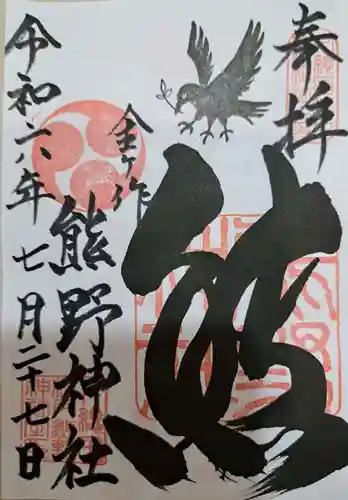 奉拝
熊
金ケ作
熊野神社
令和六年七月二十七日